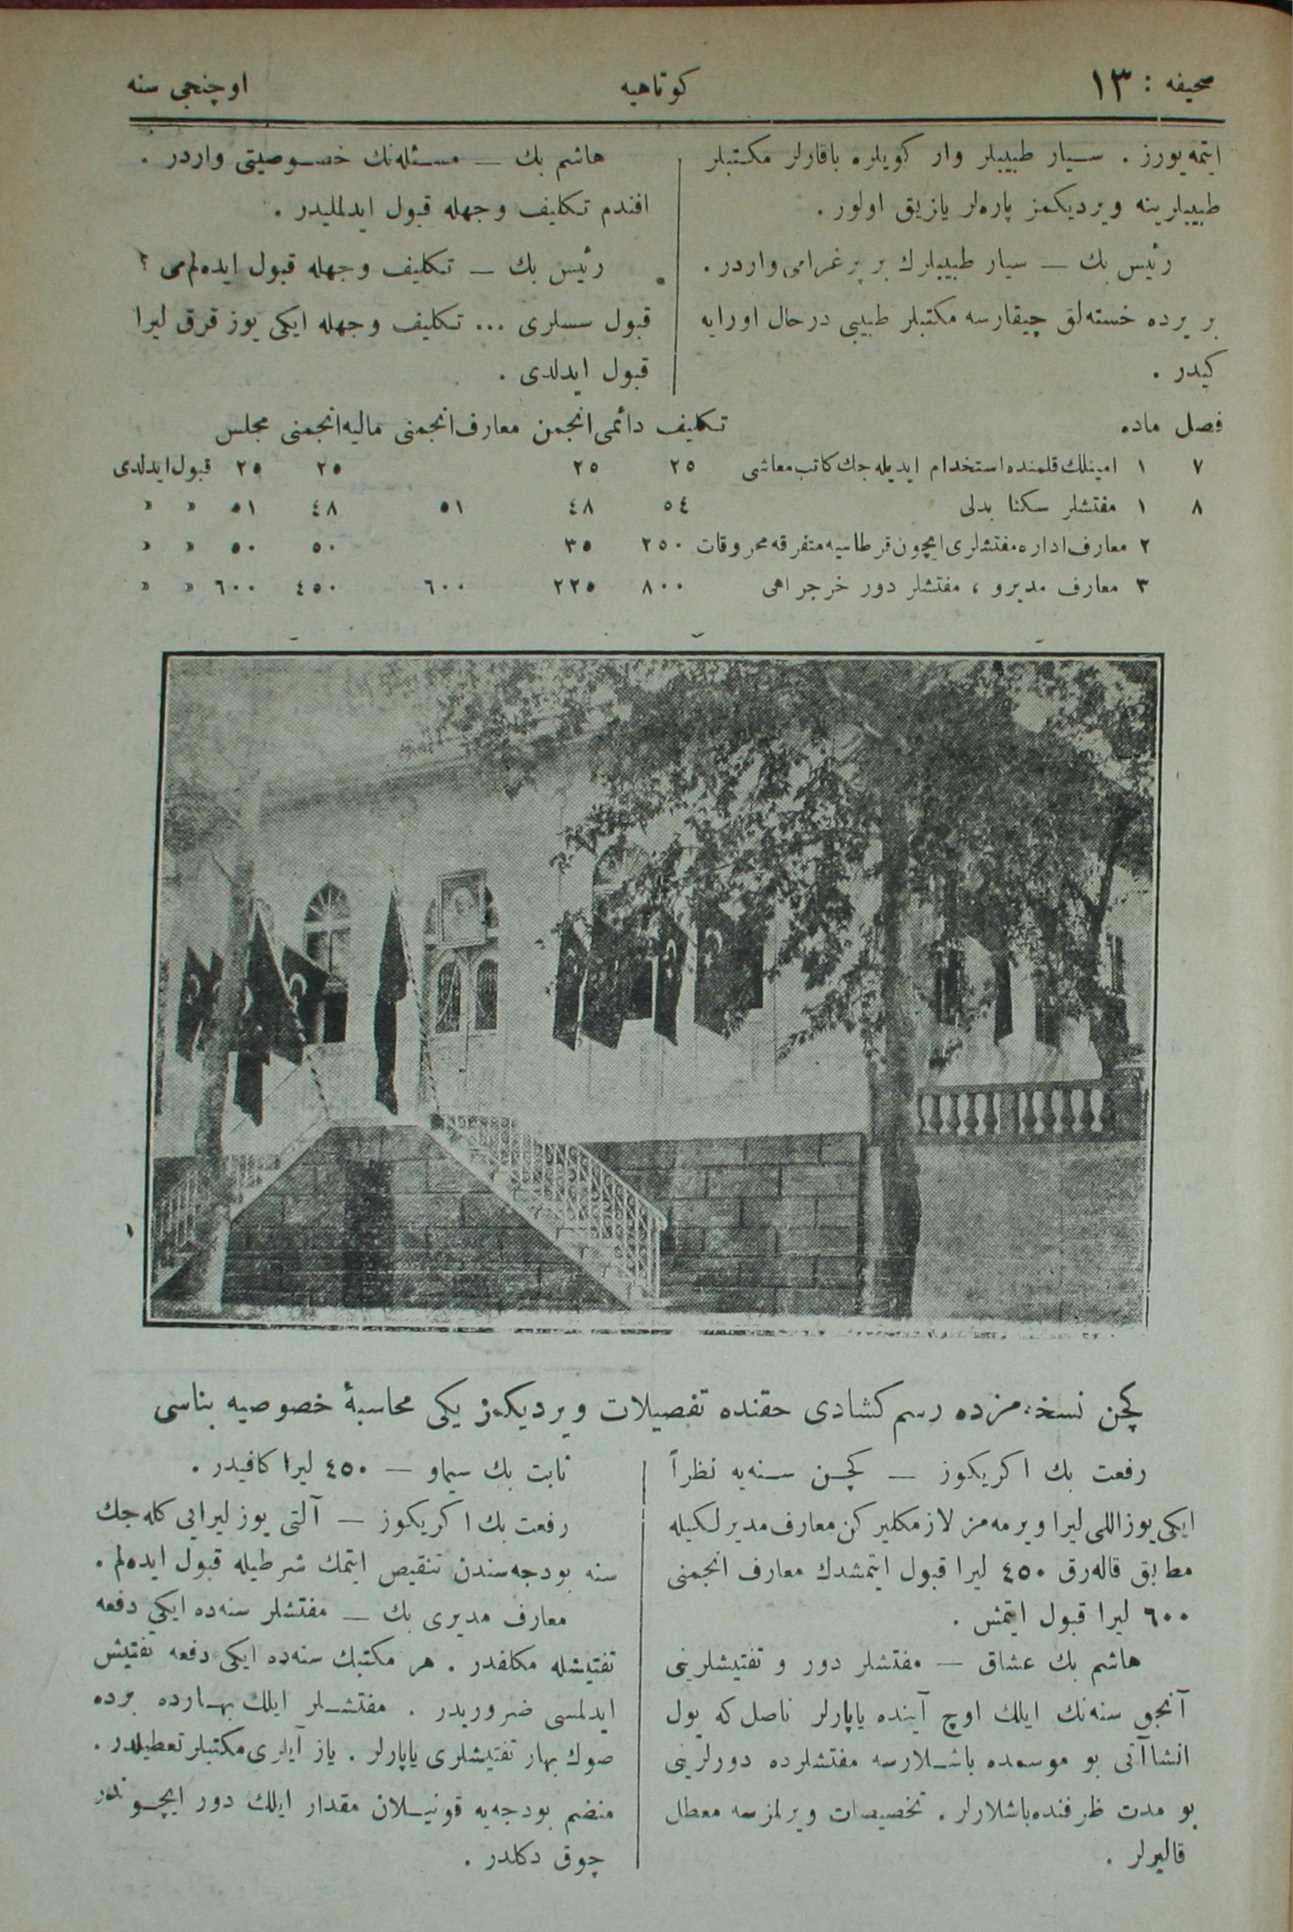 صحیفه : ١٣
كوتاهیه
اوچنجی سنه
ایتمه‌یورز . سیار طبیبلر وار كویلره باقارلر مكتبلر
طبیبلرینه ویردیكمز پاره‌لر یازیق اولور .
رئیس بك — سیار طبیبلرك بر پرغرامی واردر .
بر یرده خسته‌لق چیقارسه مكتبلر طبیبی درحال اورایه
كیدر .
هاشم بك — مسئله‌نك خصوصیتی واردر .
افندم تكلیف وجهله قبول ایدلملیدر .
رئیس بك — تكلیف وجهله قبول ایده‌لم‌می ؟
قبول سسلری ... تكلیف وجهله ایكی یوز قرق لیرا
قبول ایدلدی .
فصل ماده تكلیف دائمی انجمن معارف انجمنی مالیه انجمنی مجلس
٧ ١ امینلك قلمنده استخدام ایدیله‌جك كاتب معاشی ٢٥ ٢٥ ٢٥ ٢٥ قبول ایدلدی
٨ ١ مفتشلر سكنا بدلی ٥٤ ٤٨ ٥١ ٤٨ ٥١ » »
٢ معارف اداره مفتشلری ایچون قرطاسیه متفرقه محروقات ٢٥٠ ٣٥ ٥٠ ٥٠ » »
٣ معارف مدیرو ، مفتشلر دور خرجراهی ٨٠٠ ٢٢٥ ٦٠٠ ٤٥٠ ٦٠٠ » »
كچن نسخه‌مزده رسم كشادی حقنده تفصیلات ویردیكمز یكی محاسبهٔ خصوصیه بناسی
رفعت بك اكریكوز — كچن سنه‌یه نظراً
ایكی یوز اللی لیرا ویرمه‌مز لازمكلیركن معارف مدیرلكیله
مطابق قاله‌رق ٤٥٠ لیرا قبول ایتمشدك معارف انجمنی
٦٠٠ لیرا قبول ایتمش .
هاشم بك عشاق — مفتشلر دور و تفتیشلرینی
آنجق سنه‌نك ایلك اوچ آینده یاپارلر ناصل‌كه یول
انشاآتی بو موسمده باشلارسه مفتشلرده دورلرینی
بو مدت ظرفنده باشلارلر . تخصیصات ویرلمزسه معطل
قالیرلر .
ثابت بك سیماو — ٤٥٠ لیرا كافیدر .
رفعت بك اكریكوز — آلتی یوز لیرایی كله‌جك
سنه بودجه‌سندن تنقیص ایتمك شرطیله قبول ایده‌لم .
معارف مدیری بك — مفتشلر سنه‌ده ایكی دفعه
تفتیشله مكلفدر . هر مكتبك سنه‌ده ایكی دفعه تفتیش
ایدلمسی ضروریدر . مفتشلر ایلك بهارده برده
صوك بهار تفتیشلری یاپارلر . یاز آیلری مكتبلر تعطیلدر .
منضم بودجه‌یه قونیلان مقدار ایلك دور ایچوندر
چوق دكلدر .